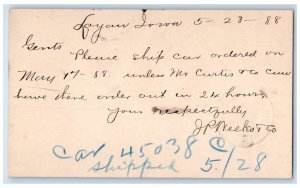 Logan Iowa 5-28-88
Gents
Please ship car ordered on
May 17-88. unless Mr Curtis & Co can
have there order out in 24 hours,
Your respectfully
J P Weeks & Co
Car 45038 C
Shipped 5/28